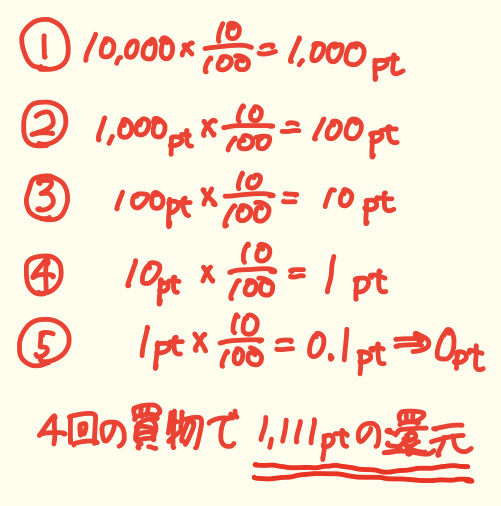 ① 10,000 × 10/100 = 1,000pt
② 1,000pt × 10/100 = 100pt
③ 100pt × 10/100 = 10pt
④ 10pt × 10/100 = 1pt
⑤ 1pt × 10/100 = 0.1pt ⇒ 0pt
4回の買物で 1,111ptの還元